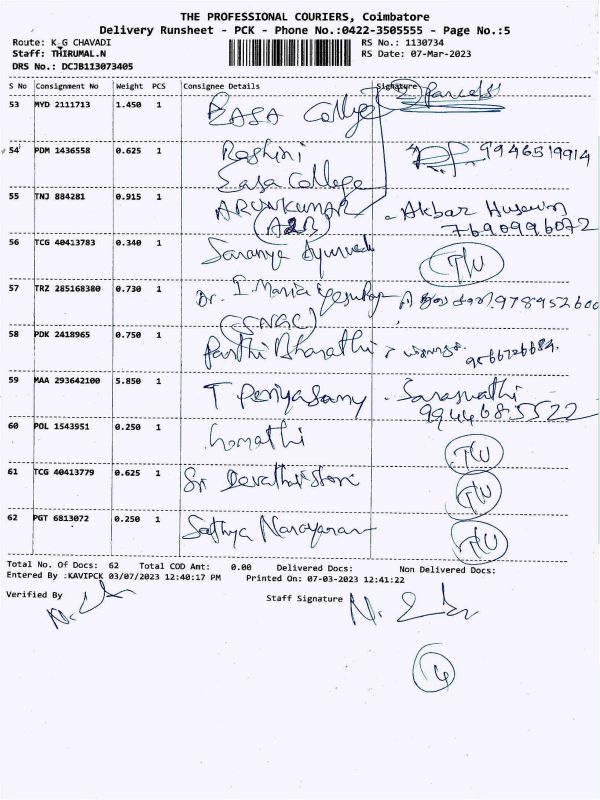 THE PROFESSIONAL COURIERS, Coimbatore
Delivery Runsheet - PCK - Phone No.:0422-3505555 - Page No.:5
Route: K G CHAVADI RS No.: 1130734
Staff: THIRUMAL.N RS Date: 07-Mar-2023
DRS No.: DCJB113073405
S No Consignment No Weight PCS Consignee Details Signature
53 MYD 2111713 1.450 1 EASA College 2 Parcels
54 PDM 1436558 0.625 1 Roshini 9946519914
Easa College
55 TNJ 884281 0.915 1 ARUNKUMAR - Akbar Husain
7690996072
56 TCG 40413783 0.340 1 Saranya Ayurved T/U
57 TRZ 285168380 0.730 1 Dr. I. Maria 978952600
(SNGC)
58 PDK 2418965 0.750 1 Parthi Bharathi 9566726684.
59 MAA 293642100 5.850 1 T Periyasamy - Saraswathi
9944685522
60 POL 1543951 0.250 1 Gomathi T/U
61 TCG 40413779 0.625 1 Sri T/U
62 PGT 6813072 0.250 1 Sathya Narayanan T/U
Total No. Of Docs: 62 Total COD Amt: 0.00 Delivered Docs: Non Delivered Docs:
Entered By :KAVIPCK 03/07/2023 12:40:17 PM Printed On: 07-03-2023 12:41:22
Verified By Staff Signature